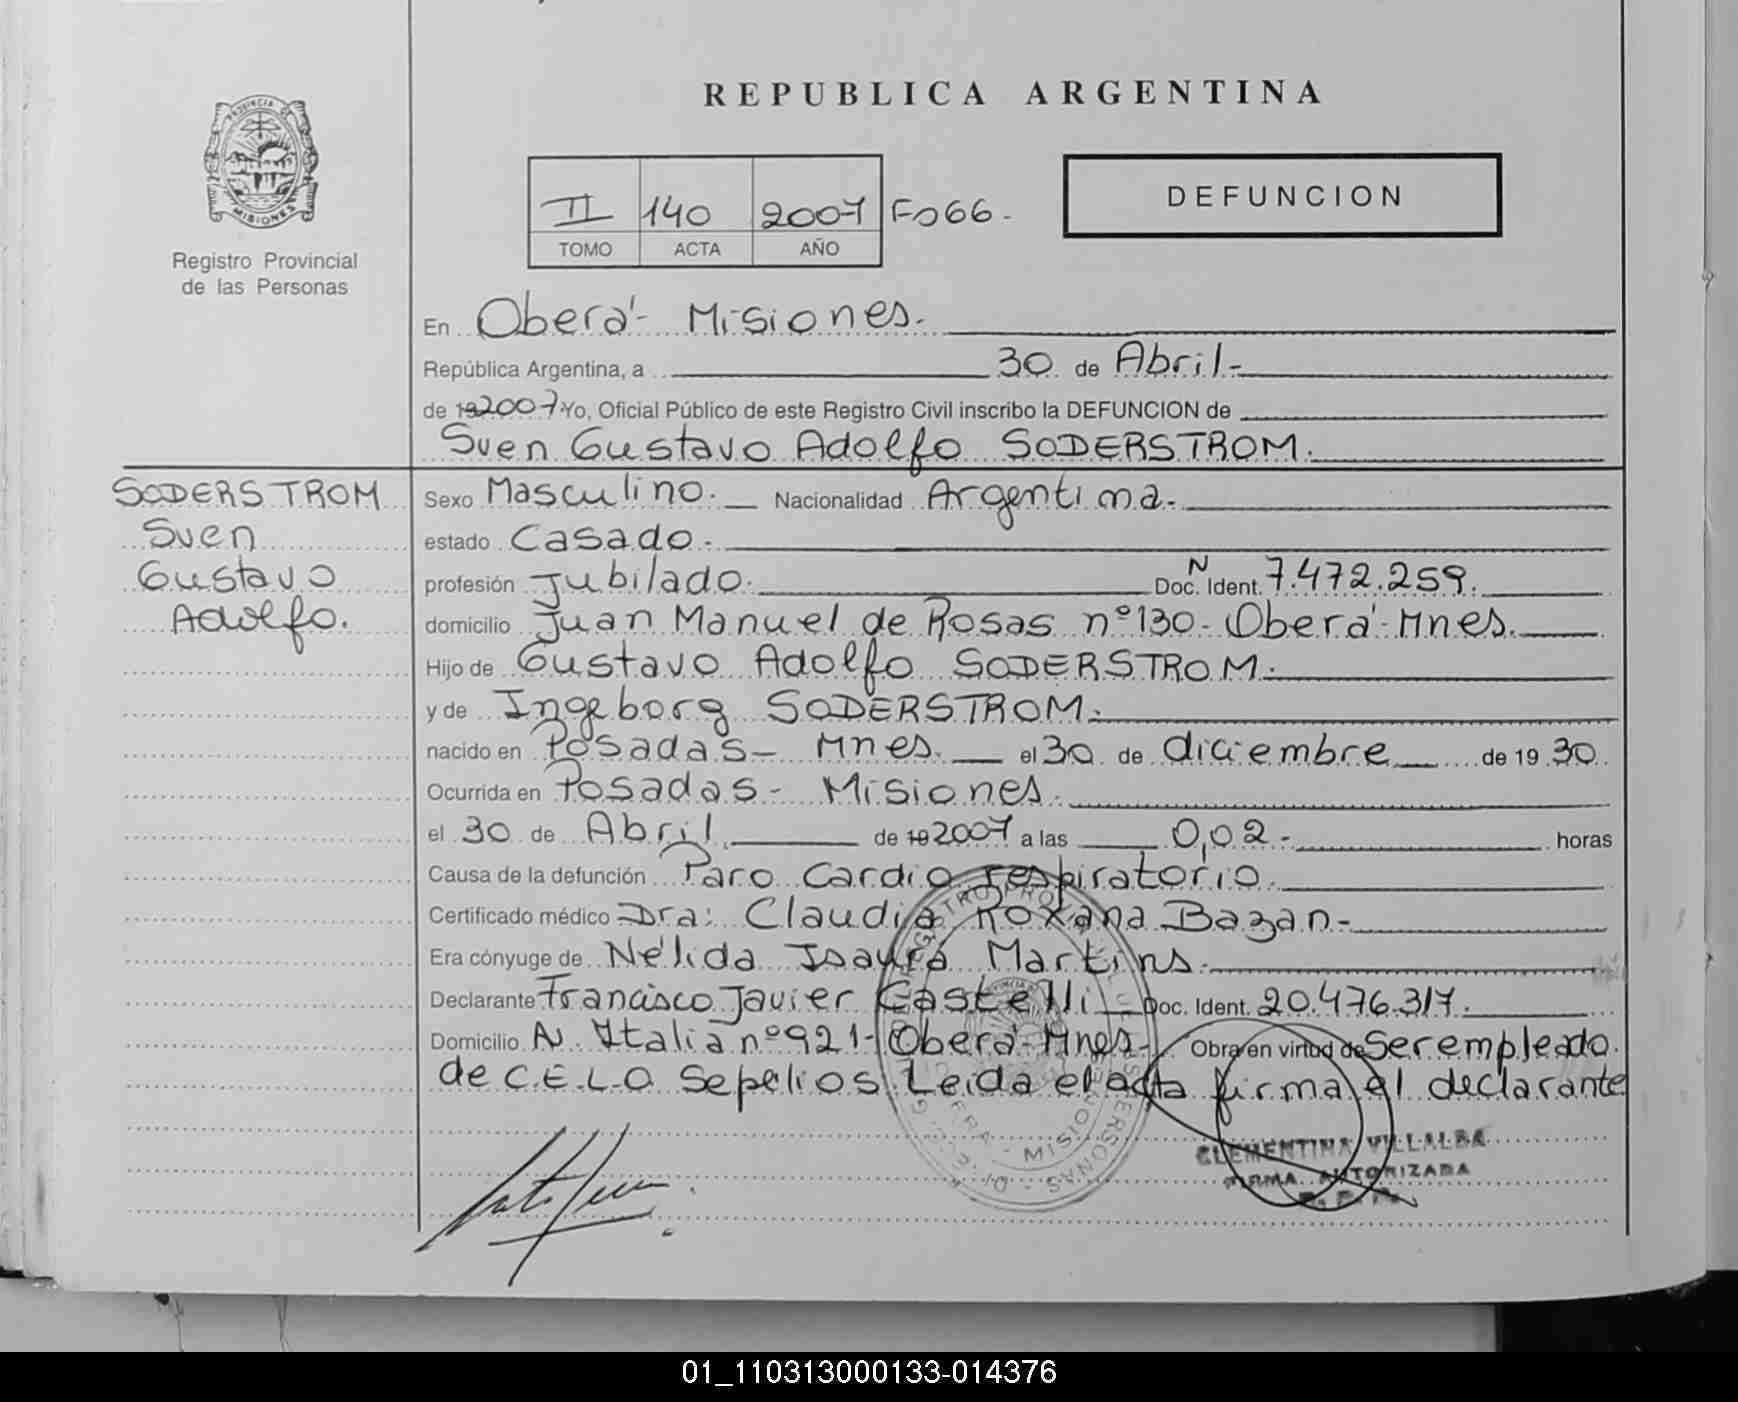 REPUBLICA ARGENTINA
PROVINCIA DE
MISIONES
Registro Provincial
de las Personas
II 140 2007 Fo66.
TOMO ACTA AÑO
DEFUNCION
En Oberá - Misiones.
República Argentina, a 30 de Abril-
de 192007 Yo, Oficial Público de este Registro Civil inscribo la DEFUNCION de
Sven Gustavo Adolfo SODERSTROM.
SODERSTROM
Sven
Gustavo
Adolfo.
Sexo Masculino. Nacionalidad Argentina.
estado Casado.
profesión Jubilado. Doc. Ident. N 7.472.259.
domicilio Juan Manuel de Rosas nº130- Oberá- Mnes.
Hijo de Gustavo Adolfo SODERSTROM.
y de Ingeborg SODERSTROM.
nacido en Posadas- Mnes. el 30 de diciembre de 19 30
Ocurrida en Posadas- Misiones.
el 30 de Abril de 19 2007 a las 0,02- horas
Causa de la defunción Paro Cardio respiratorio.
Certificado médico Dra: Claudia Roxana Bazan-
Era cónyuge de Nélida Isaura Martins.
Declarante Francisco Javier Castelli Doc. Ident. 20.476.317.
Domicilio Av. Italia nº921- Oberá- Mnes- Obra en virtud de Ser empleado
de C.E.L.O Sepelios. Leida el acta firma el declarante
CLEMENTINA VILLALBA
FIRMA AUTORIZADA
R.P.P.
01_110313000133-014376